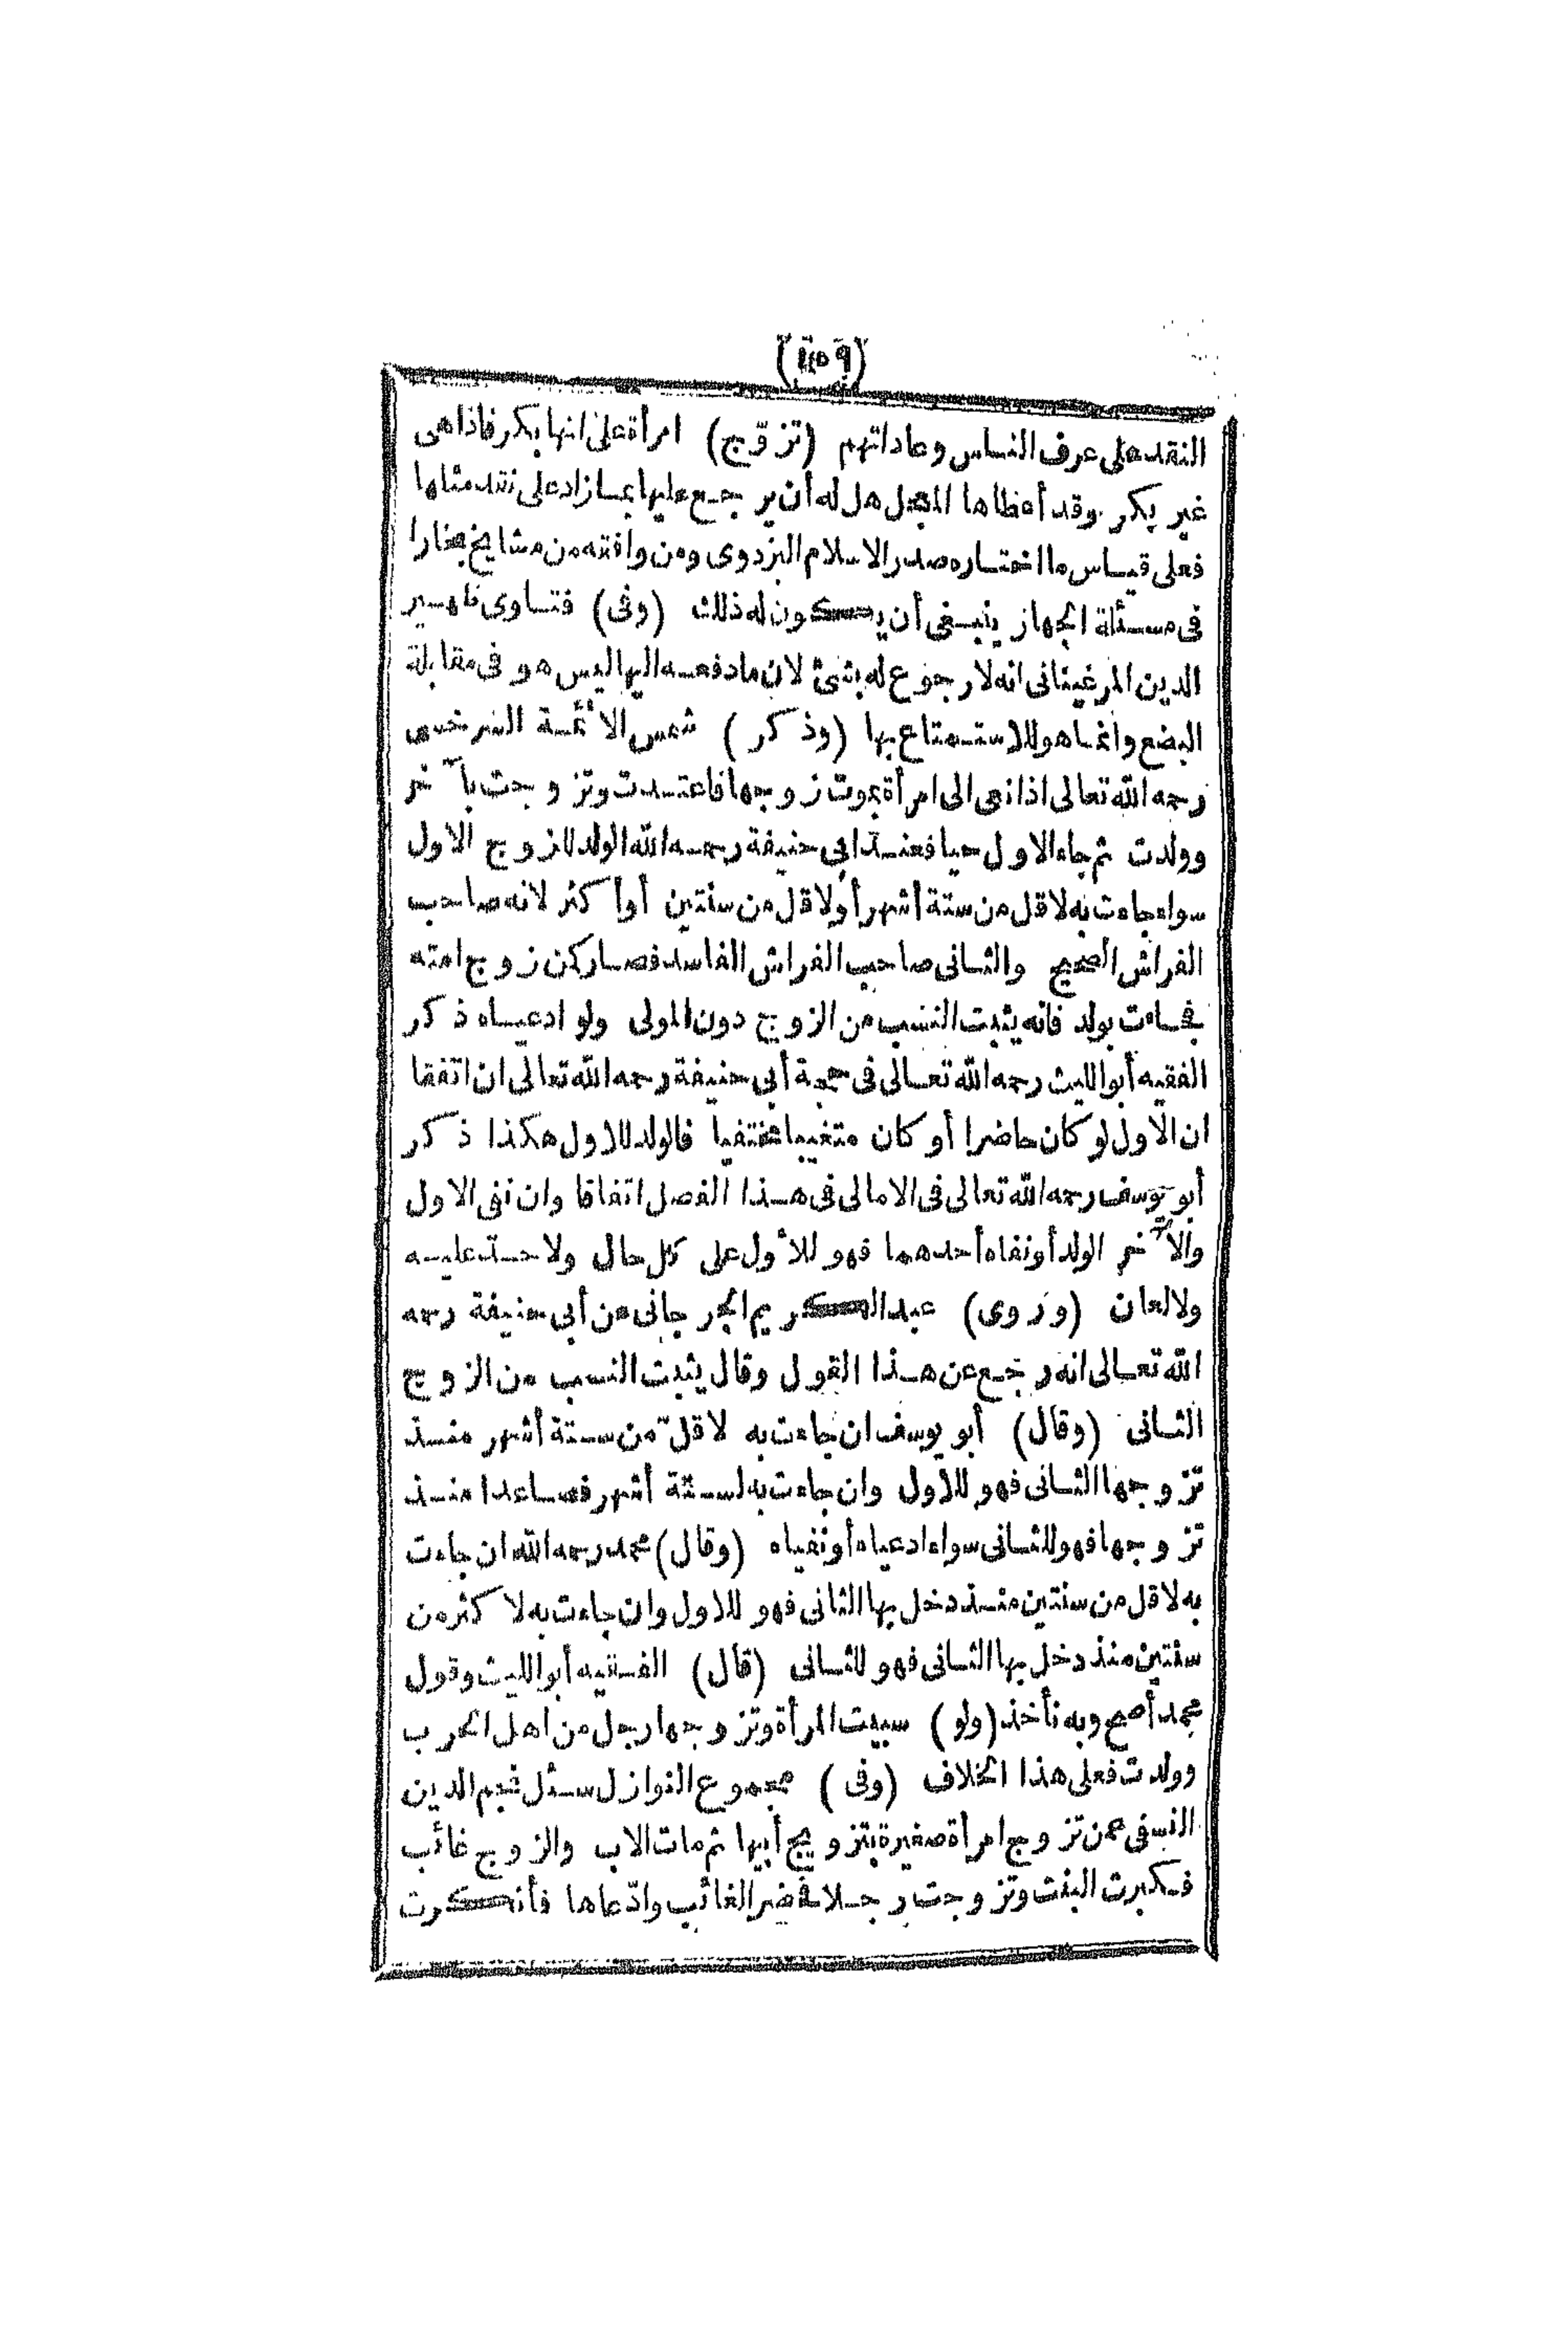 النقد على عرف الناس وعاداتهم (تزوّج) امرأة على انها بكر فاذا هى
غير بكر وقد أعطاها المعجل هل له أن يرجع عليها بما زاد على نقد مثلها
فعلى قياس ما اختاره صدر الاسلام البزدوى ومن وافقه من مشايخ بخارا
فى مسئلة الجهاز ينبغى أن يكون له ذلك (وفى) فتاوى ظهير
الدين المرغينانى انه لا رجوع له بشئ لان ما دفعه اليها ليس هو فى مقابلة
البضع وانما هو للاستمتاع بها (وذكر) شمس الأئمة السرخسى
رحمه الله تعالى اذا نعى الى امرأة بموت زوجها فاعتدت وتزوجت بآخر
وولدت ثم جاء الاول حيا فعند ابى حنيفة رحمه الله الولد للزوج الاول
سواء جاءت به لاقل من ستة أشهر أو لاقل من سنتين أو أكثر لانه صاحب
الفراش الصحيح والثانى صاحب الفراش الفاسد فصار كمن زوج امته
فجاءت بولد فانه يثبت النسب من الزوج دون المولى ولو ادعياه ذكر
الفقيه أبو الليث رحمه الله تعالى فى حجة أبى حنيفة رحمه الله تعالى ان اتفقا
ان الاول لو كان حاضرا أو كان متغيبا مختفيا فالولد للاول هكذا ذكر
أبو يوسف رحمه الله تعالى فى الامالى فى هذا الفصل اتفاقا وان نفى الاول
والآخر الولد أو نفاه أحدهما فهو للأول على كل حال ولا حد عليه
ولا لعان (وروى) عبد الكريم الجرجانى عن أبى حنيفة رحمه
الله تعالى انه رجع عن هذا القول وقال يثبت النسب من الزوج
الثانى (وقال) أبو يوسف ان جاءت به لاقل من ستة أشهر منذ
تزوجها الثانى فهو للأول وان جاءت به لستة أشهر فصاعدا منذ
تزوجها فهو للثانى سواء ادعياه أو نفياه (وقال) محمد رحمه الله ان جاءت
به لاقل من سنتين منذ دخل بها الثانى فهو للاول وان جاءت به لاكثر من
سنتين منذ دخل بها الثانى فهو للثانى (قال) الفقيه أبو الليث وقول
محمد أصح وبه نأخذ (ولو) سبيت المرأة وتزوجها رجل من اهل الحرب
وولدت فعلى هذا الخلاف (وفى) مجموع النوازل سئل نجم الدين
النسفى عمن تزوج امرأة صغيرة بتزويج أبيها ثم مات الاب والزوج غائب
فكبرت البنت وتزوجت رجلا فحضر الغائب وادّعاها فأنكرت